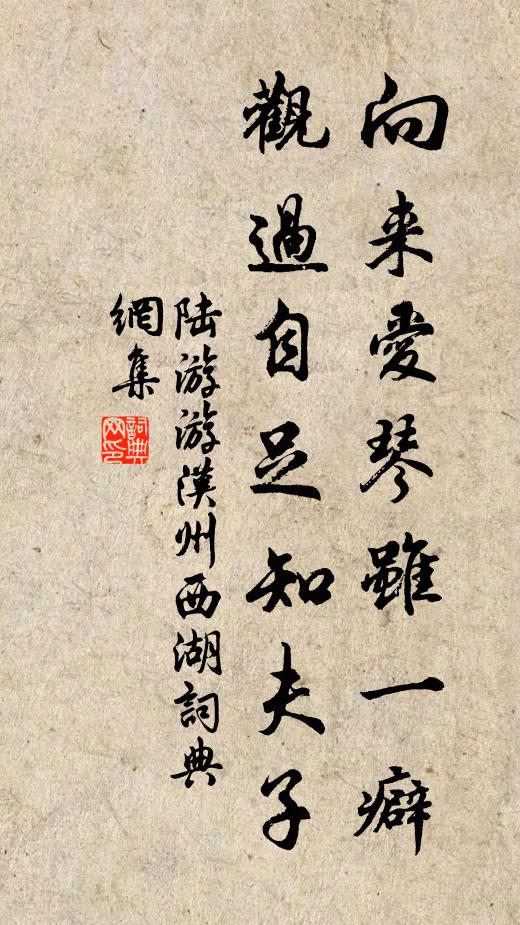 向来愛琴雖一癖
觀過自足知夫子
陆游游漢州西湖詞典
網集
詞典
网印